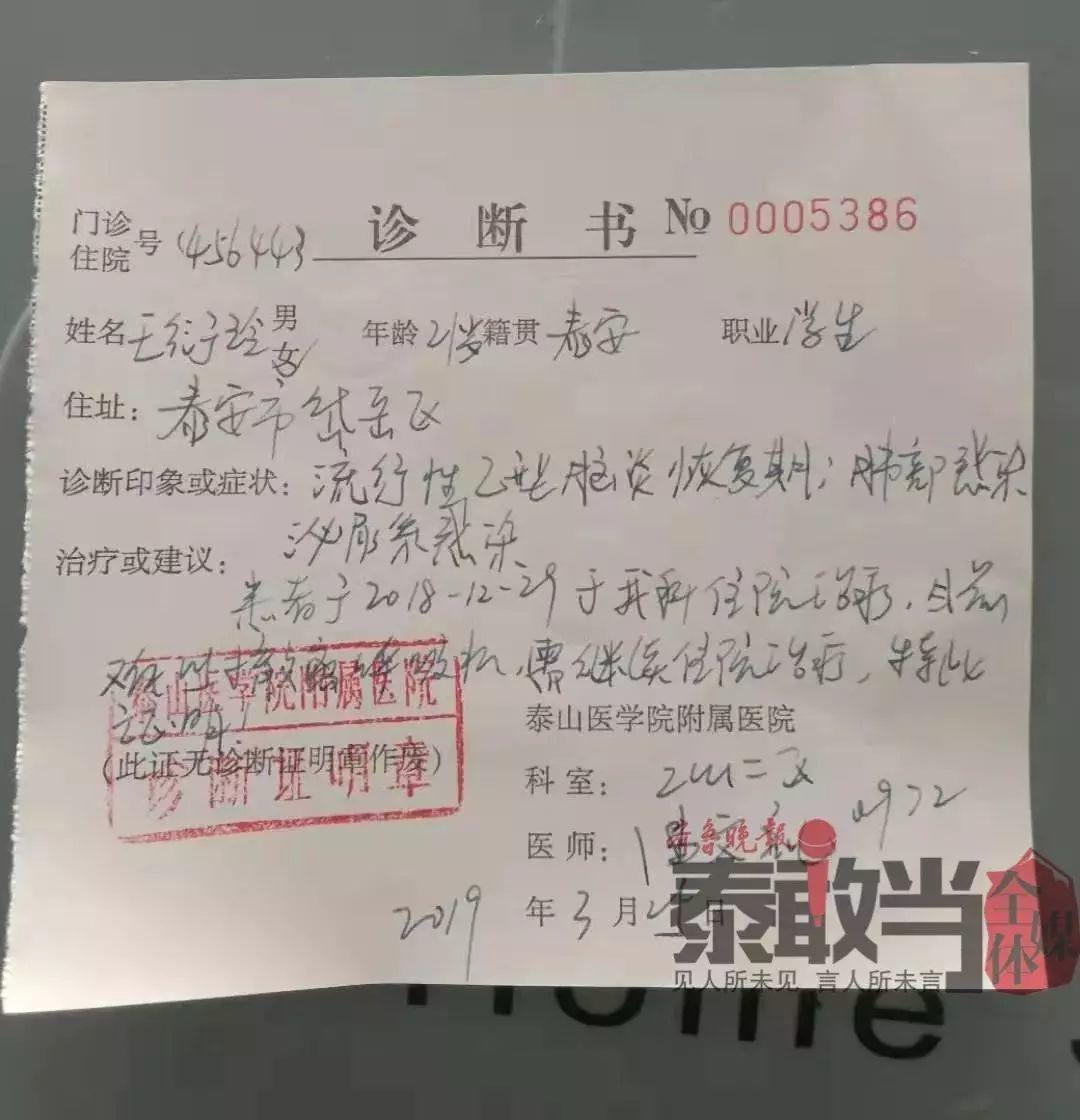 门诊
住院 号 456443 诊断书 № 0005386
姓名 王衍玲 男 女 年龄 21岁 籍贯 泰安 职业 学生
住址：泰安市岱岳区
诊断印象或症状：流行性乙型脑炎恢复期；肺部感染
泌尿系感染
治疗或建议：
患者于2018-12-29于我科住院治疗，目前
难以撤离呼吸机，需继续住院治疗，特此
证明！
泰山医学院附属医院
诊断证明章
泰山医学院附属医院
(此证无诊断证明章作废)
科室：ICU二区
医师：
2019年3月25日
齐鲁晚报
泰敢当
全媒体
见人所未见 言人所未言
Home